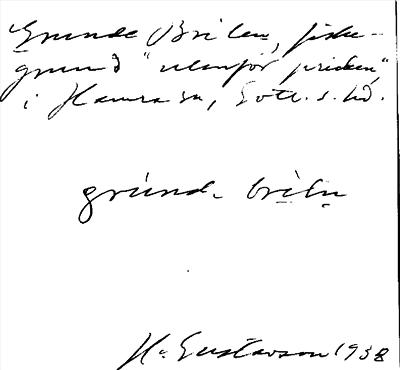 Grunde Brilen, fiske-
grund "utanför pricken",
i Hamra sn, Gotl. s. hd.
grúnde brìln
H. Gustavson 1938